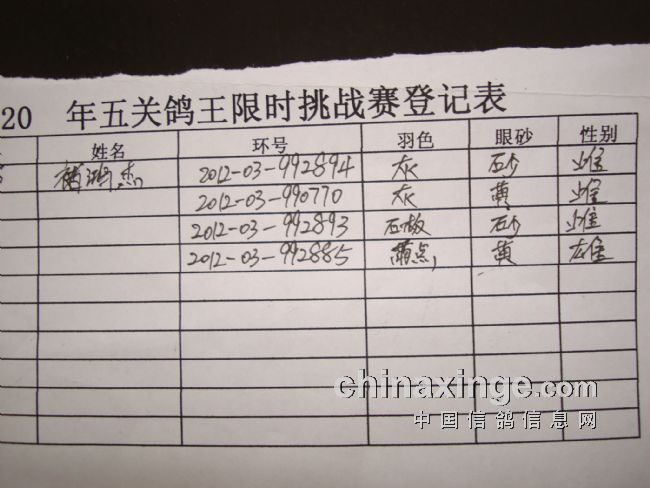 20 年五关鸽王限时挑战赛登记表
姓名 环号 羽色 眼砂 性别
鸿杰 2012-03-992894 灰 砂 雌
2012-03-990770 灰 黄 雌
2012-03-992893 石板 砂 雌
2012-03-992885 点 黄 雄
chinaxinge.com
中国信鸽信息网